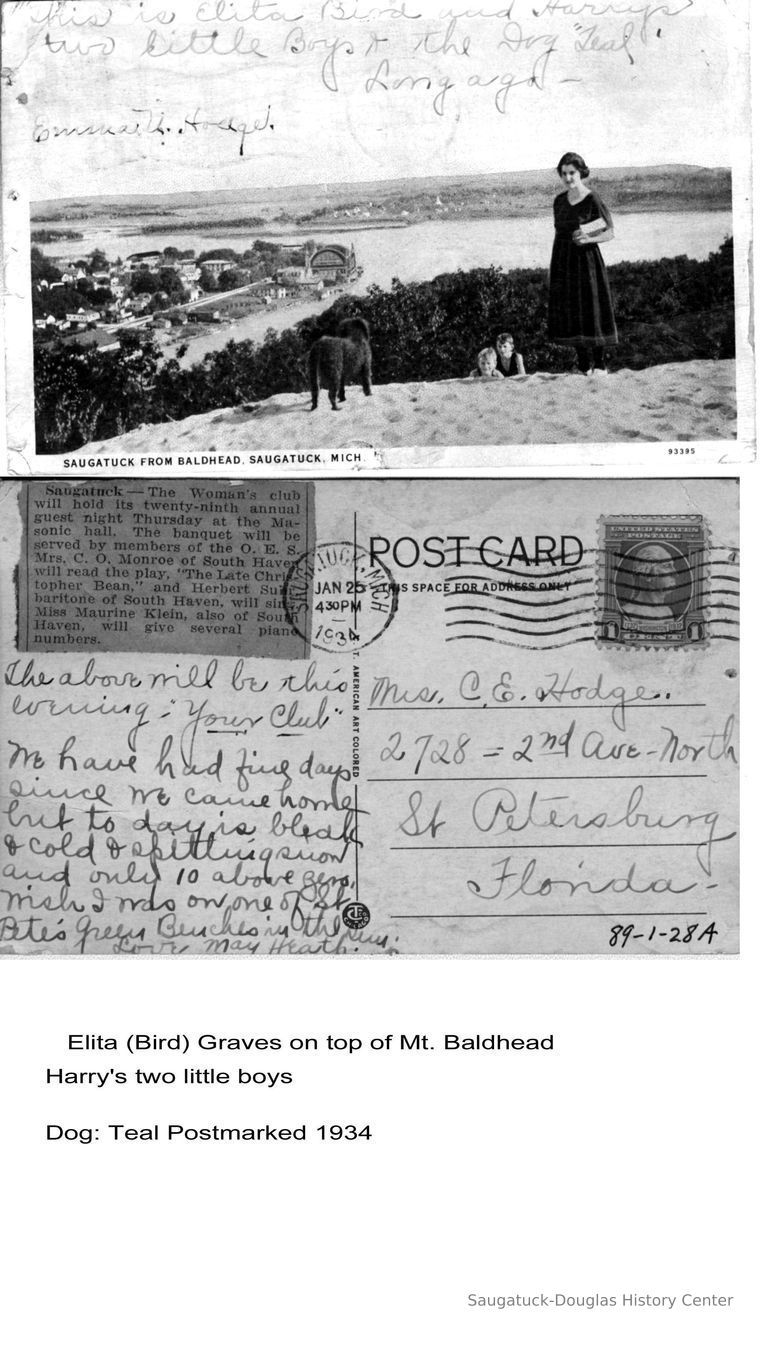 This is Elita Bird and Harry's
two little Boys & the Dog "Teal"
Long ago -
Emma H. Hodge.
SAUGATUCK FROM BALDHEAD, SAUGATUCK, MICH.
93395
Saugatuck — The Woman's club
will hold its twenty-ninth annual
guest night Thursday at the Ma-
sonic hall. The banquet will be
served by members of the O. E. S.
Mrs. C. O. Monroe of South Haven
will read the play, "The Late Chris
topher Bean," and Herbert
baritone of South Haven, will sing
Miss Maurine Klein, also of South
Haven, will give several piano
numbers.
SAUGATUCK, MICH.
JAN 25
430PM
1934
POST CARD
THIS SPACE FOR ADDRESS ONLY
UNITED STATES
POSTAGE
1 1
C.T. AMERICAN ART COLORED
The above will be this
evening - "Your Club"
We have had fine days
since we came home
but to day is bleak
& cold & spitting snow
and only 10 above zero.
Wish I was on one of St.
Pete's Green Benches in the sun.
Love May Heath.
Mrs. C. E. Hodge.
2728 = 2nd Ave - North
St Petersburg
Florida -
89-1-28A
Elita (Bird) Graves on top of Mt. Baldhead
Harry's two little boys
Dog: Teal Postmarked 1934
Saugatuck-Douglas History Center